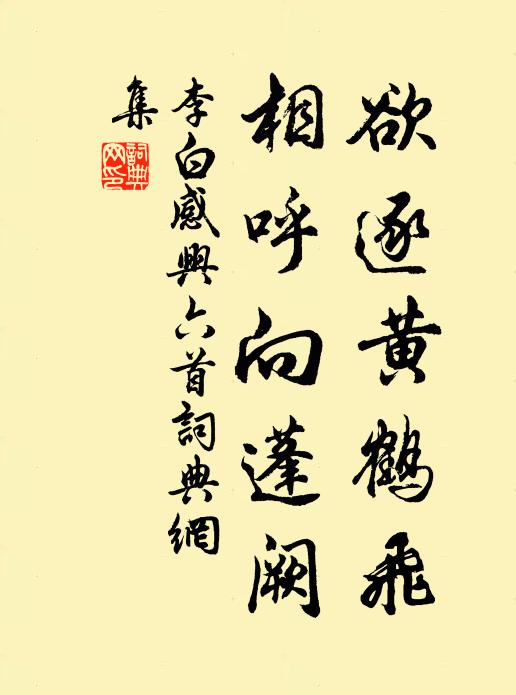 欲逐黄鶴飛
相呼向蓬闕
李白感興六首詞典網
集
詞典
网印